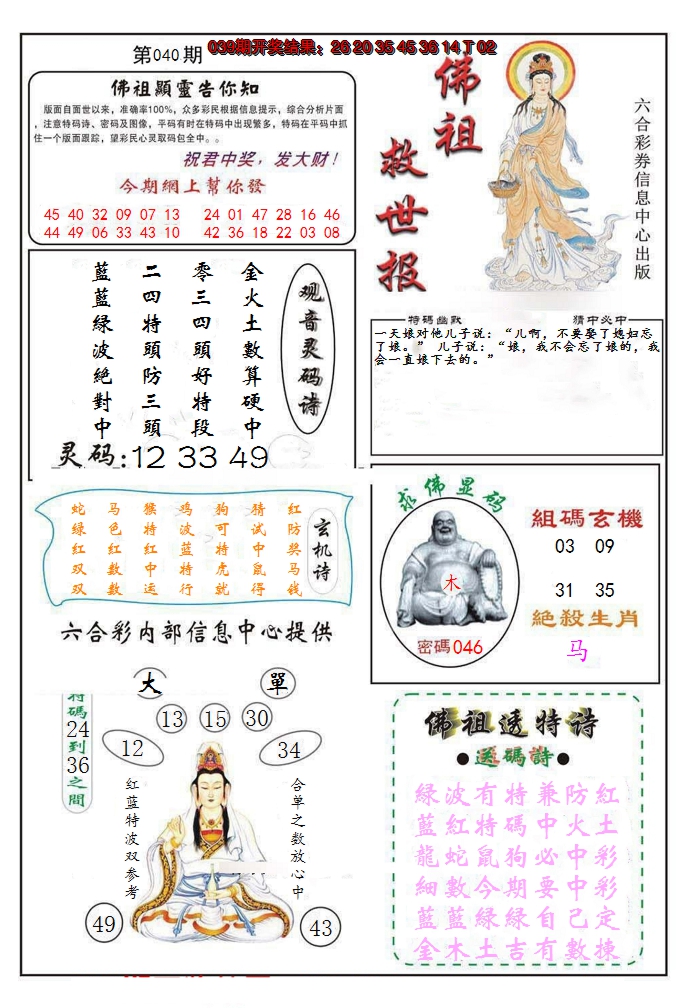 第040期
039期开奖结果：26 20 35 45 36 14 T 02
佛祖顯靈告你知
版面自面世以来，准确率100%，众多彩民根据信息提示，综合分析片面
，注意特码诗、密码及图像，平码有时在特码中出现繁多，特码在平码中抓
住一个版面跟踪，望彩民心灵取码包全中。。
祝君中奖，发大财！
今期網上幫你發
45 40 32 09 07 13 24 01 47 28 16 46
44 49 06 33 43 10 42 36 18 22 03 08
佛祖
救世报
六合彩券信息中心出版
金火土數算硬中
零三四頭好特段
二四特頭防三頭
藍藍綠波絕對中
观音灵码诗
灵码:12 33 49
特碼幽默
猜中必中
一天娘对他儿子说：“儿啊，不要娶了媳妇忘
了娘。” 儿子说：“娘，我不会忘了娘的，我
会一直娘下去的。”
蛇马猴鸡狗猜红
绿色特波可试防
红红红蓝特中奖
双数中特虎鼠马
双数运行就得钱
玄机诗
六合彩内部信息中心提供
求佛显码
木
密碼046
組碼玄機
03 09
31 35
絕殺生肖
马
大
單
特碼24到36之間
13
15
30
12
34
红蓝特波双参考
合单之数放心中
49
43
佛祖透特诗
●送碼詩●
綠波有特兼防紅
藍紅特碼中火土
龍蛇鼠狗必中彩
細數今期要中彩
藍藍綠綠自己定
金木土吉有數揀